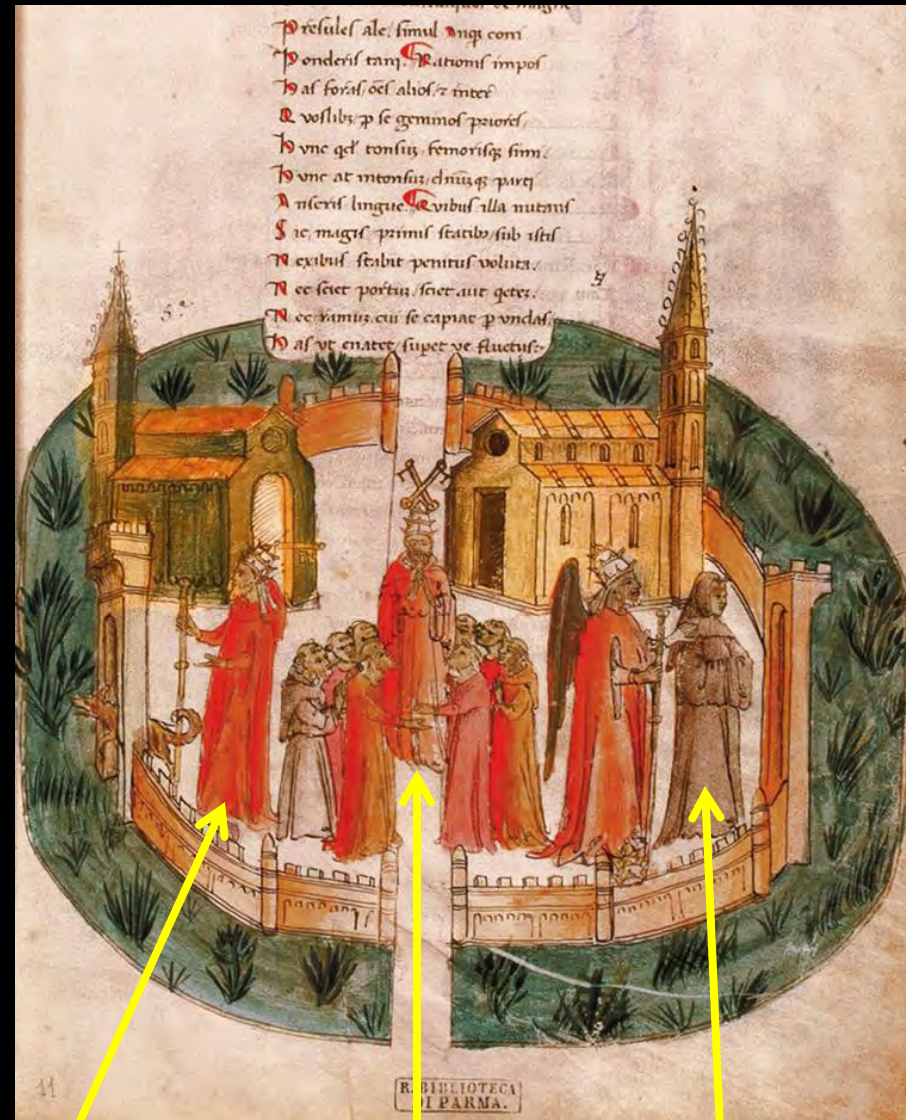 Presules ale, simul
Ponderis tanti. Rationis impos
Has foras, oēs alios, ⁊ inter
Quoslibꝫ p se geminos priores,
Hunc qd' tonsus, femorisqꝫ simi.
Hunc at intonsus, parti
Anseris lingue. Quibus illa nutans
Sic, magis primis statibꝫ sub istis
Nexibus stabit penitus voluta.
Nec sciet portus, sciet aut
Nec ramus, cui se capiat p undas,
Has ut enatet, supet ve fluctus:
5ª
11
R. BIBLIOTECA
DI PARMA.